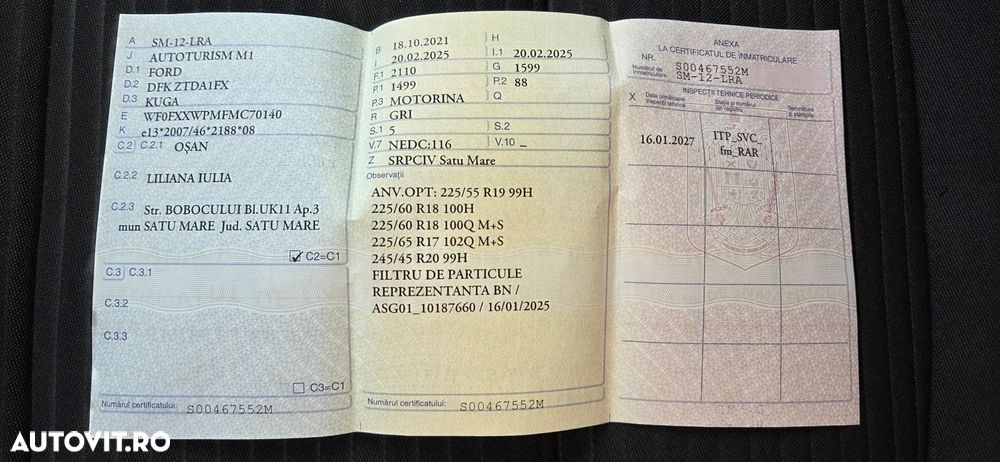 A SM-12-LRA
J AUTOTURISM M1
D.1 FORD
D.2 DFK ZTDA1FX
D.3 KUGA
E WF0FXXWPMFMC70140
K e13*2007/46*2188*08
C.2 C.2.1 OȘAN
C.2.2 LILIANA IULIA
C.2.3 Str. BOBOCULUI Bl.UK11 Ap.3
mun SATU MARE Jud. SATU MARE
C2=C1
C.3 C.3.1
C.3.2
C.3.3
C3=C1
Numărul certificatului: S00467552M
B 18.10.2021 H
I 20.02.2025 I.1 20.02.2025
F.1 2110 G 1599
P.1 1499 P.2 88
P.3 MOTORINA Q
R GRI
S.1 5 S.2
V.7 NEDC:116 V.10 –
Z SRPCIV Satu Mare
Observații
ANV.OPT: 225/55 R19 99H
225/60 R18 100H
225/60 R18 100Q M+S
225/65 R17 102Q M+S
245/45 R20 99H
FILTRU DE PARTICULE
REPREZENTANTA BN /
ASG01_10187660 / 16/01/2025
Numărul certificatului: S00467552M
ANEXA
LA CERTIFICATUL DE ÎNMATRICULARE
NR. S00467552M
Numărul de înmatriculare SM-12-LRA
INSPECȚII TEHNICE PERIODICE
X Data următoarei inspecții tehnice
Stația și numărul din registru
Semnătura și ștampila
16.01.2027 ITP_SVC_
fm_RAR
AUTOVIT.RO